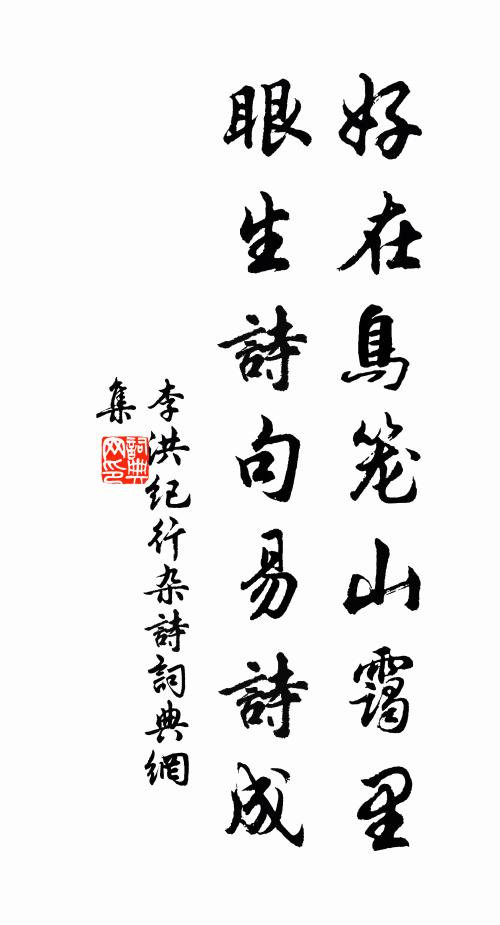 好在鳥笼山靄里
眼生詩句易詩成
李洪纪行杂詩詞典網
集
詞典網印